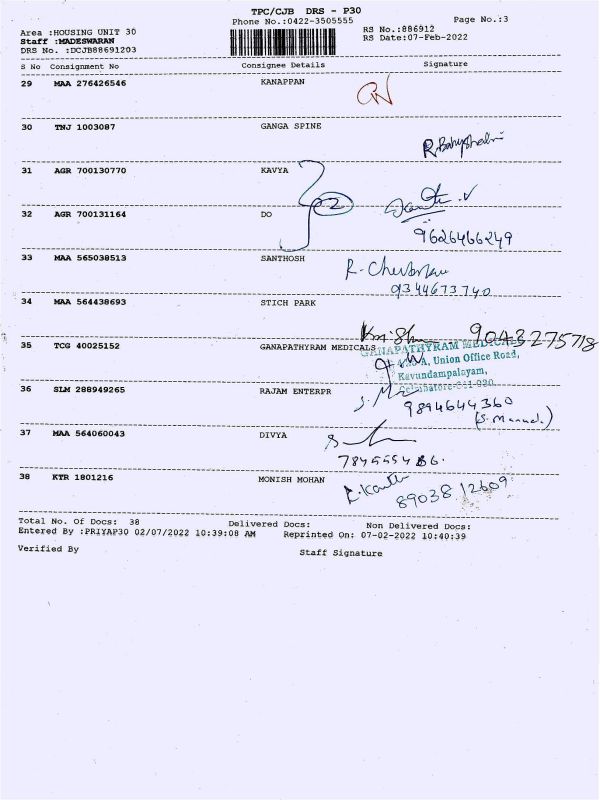 TPC/CJB DRS - P30
Phone No.:0422-3505555
Page No.:3
Area :HOUSING UNIT 30
RS No.:886912
Staff :MADESWARAN
RS Date:07-Feb-2022
DRS No. :DCJB88691203
S No Consignment No Consignee Details Signature
29 MAA 276426546 KANAPPAN
30 TNJ 1003087 GANGA SPINE
31 AGR 700130770 KAVYA
2
32 AGR 700131164 DO
9626466249
33 MAA 565038513 SANTHOSH
9344673740
34 MAA 564438693 STICH PARK
9043275718
35 TCG 40025152 GANAPATHYRAM MEDICALS
GANAPATHYRAM MEDICALS
Union Office Road,
Kavundampalayam,
36 SLM 288949265 RAJAM ENTERPR
9894644360
37 MAA 564060043 DIVYA
38 KTR 1801216 MONISH MOHAN
89038 12609
Total No. Of Docs: 38 Delivered Docs: Non Delivered Docs:
Entered By :PRIYAP30 02/07/2022 10:39:08 AM Reprinted On: 07-02-2022 10:40:39
Verified By Staff Signature